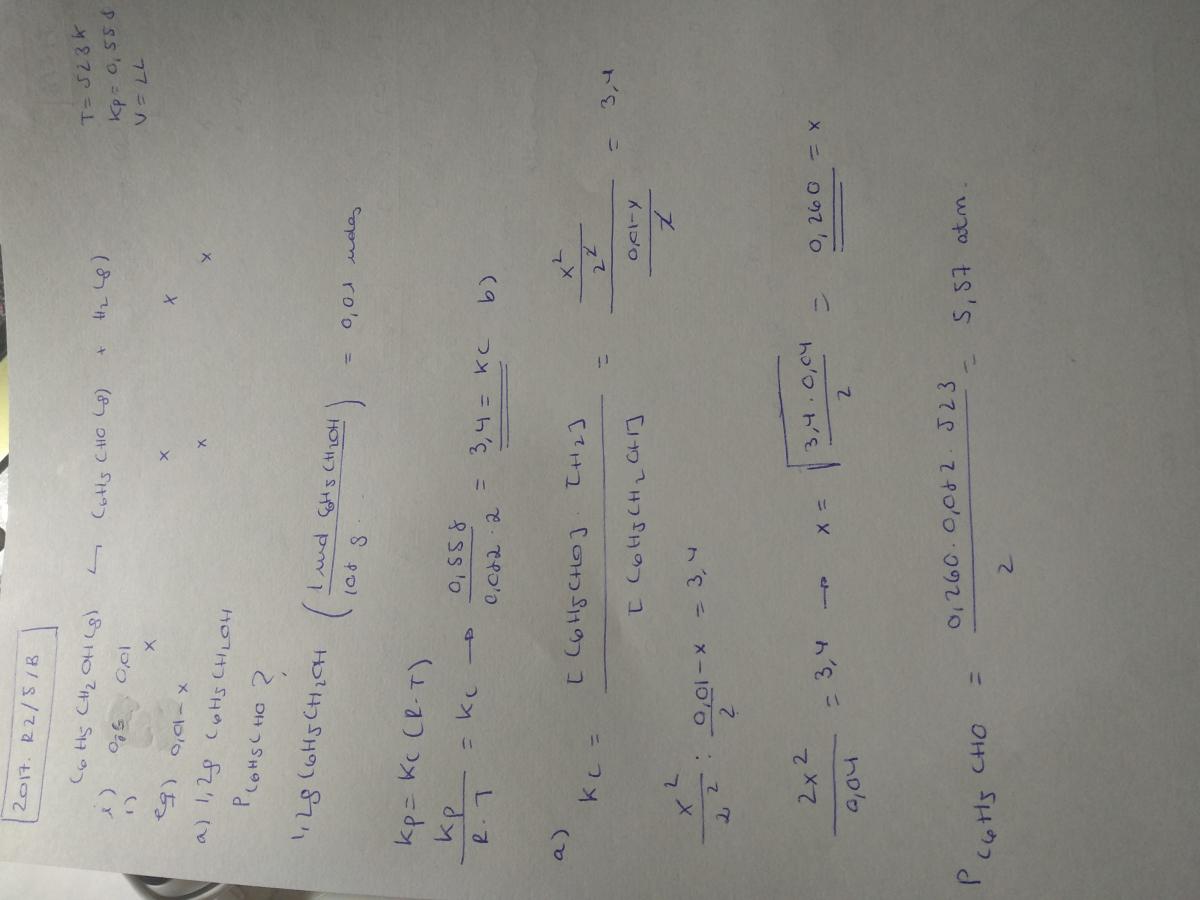 2017. R2/5/B
T = 523K
Kp = 0,558
V = 2L
C6H5CH2OH(g) ⇆ C6H5CHO(g) + H2(g)
i) 0,01
eq) 0,01-x x x
a) 1,2g C6H5CH2OH
P C6H5CHO ?
1,2g C6H5CH2OH ( 1 mol C6H5CH2OH / 108 g ) = 0,01 moles
Kp = Kc (R·T)
Kp / R·T = Kc → 0,558 / 0,082·2 = 3,4 = Kc b)
a)
Kc = [C6H5CHO]·[H2] / [C6H5CH2OH] = x² / 2² / 0,01-x / 2 = 3,4
x² / 2² : 0,01-x / 2 = 3,4
2x² / 0,04 = 3,4 → x = √ 3,4·0,04 / 2 = 0,260 = x
P C6H5CHO = 0,260·0,082·523 / 2 = 5,57 atm.